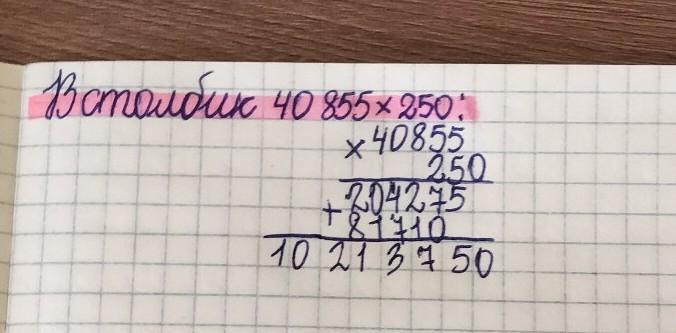 В столбик 40 855 × 250:
× 40855
250
204275
+ 81710
10 213 750